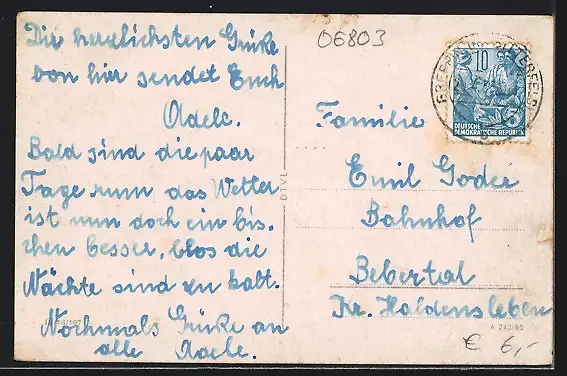 Die herzlichsten Grüße
von hier sendet Euch
Adele.
Bald sind die paar
Tage rum das Wetter
ist nun doch ein bis-
chen besser, blos die
Nächte sind zu kalt.
Nochmals Grüße an
alle Adele.
DTVL
06803
10
DEUTSCHE
DEMOKRATISCHE REPUBLIK
Familie
Emil Goder
Bahnhof
Bebertal
Kr. Haldensleben
A 242/55
€ 6,-